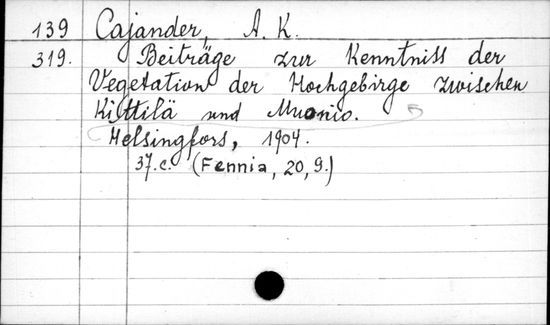 139 Cajander, A. K.
319. Beiträge zur Kenntniss der
Vegetation der Hochgebirge zwischen
Kittilä und Muonio.
Helsingfors, 1904.
37.c. (Fennia, 20, 9.)